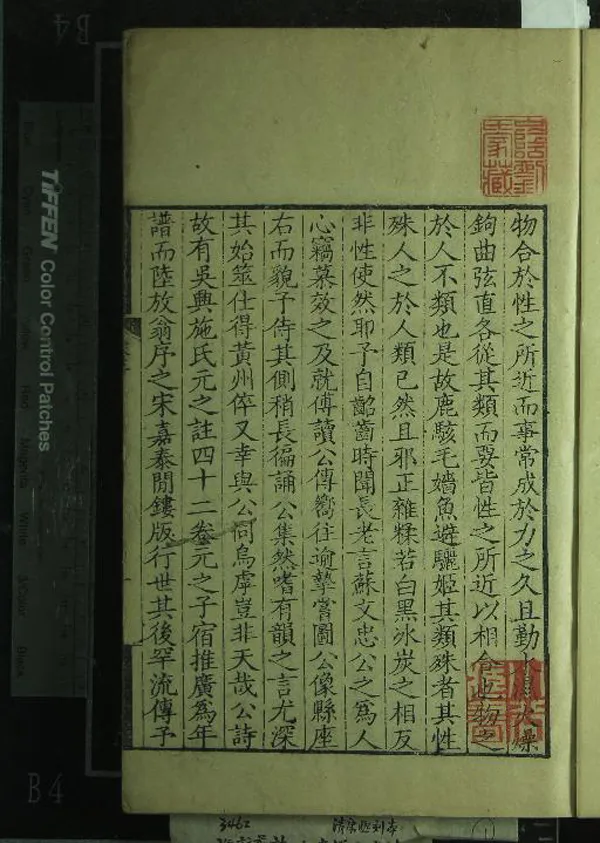 物合於性之所近而事常成於力之久且勤
鉤曲弦直各從其類而要皆性之所近以相合也物之
於人不類也是故鹿駭毛嬙魚避驪姬其類殊者其性
殊人之於人類已然且邪正雜糅若白黑冰炭之相反
非性使然耶予自齠齒時聞長老言蘇文忠公之為人
心竊慕效之及就傅讀公傳嚮往逾摯嘗圖公像縣座
右而貌予侍其側稍長徧誦公集然嗜有韻之言尤深
其始筮仕得黃州倅又幸與公同烏虖豈非天哉公詩
故有吳興施氏元之註四十二卷元之子宿推廣為年
譜而陸放翁序之宋嘉泰閒鏤版行世其後罕流傳予
TIFFEN Color Control Patches
B4
B4
3462